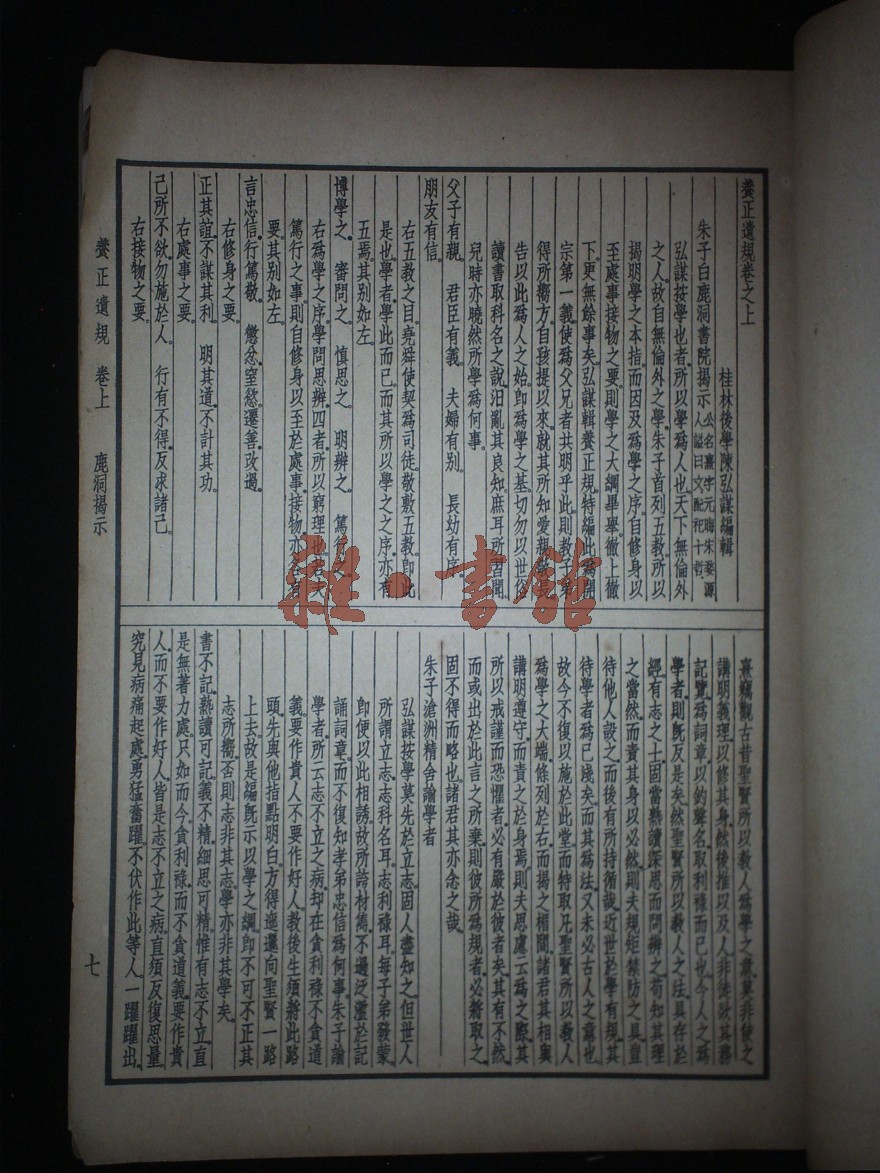 養正遺規卷之上
桂林後學陳弘謀編輯
朱子白鹿洞書院揭示 公名熹字元晦宋婺源人諡曰文配祀十哲
弘謀按學也者所以學為人也天下無倫外
之人故自無倫外之學朱子首列五教所以
揭明學之本指而因及為學之序自修身以
至處事接物之要則學之大綱畢舉徹上徹
下更無餘事矣弘謀輯養正規特編此為開
宗第一義使為父兄者共明乎此則教子弟
得所嚮方自孩提以來就其所知愛親敬長
告以此為人之始即為學之基切勿以世俗
讀書取科名之說汩亂其良知庶耳所習聞
兒時亦曉然所學為何事
父子有親。 君臣有義。 夫婦有別。 長幼有序。
朋友有信。
右五教之目。堯舜使契為司徒。敬敷五教。即此
是也。學者。學此而已。而其所以學之之序。亦有
五焉。其別如左。
博學之。 審問之。 慎思之。 明辨之。 篤行之。
右為學之序。學問思辨四者。所以窮理也。若夫
篤行之事。則自修身以至於處事接物。亦各有
要。其別如左。
言忠信。行篤敬。 懲忿窒慾。遷善改過。
右修身之要。
正其誼。不謀其利。 明其道。不計其功。
右處事之要。
己所不欲。勿施於人。 行有不得。反求諸己。
右接物之要。
養正遺規 卷上 鹿洞揭示
熹竊觀古昔聖賢所以教人為學之意。莫非使之
講明義理。以修其身。然後推以及人。非徒欲其務
記覽。為詞章。以釣聲名。取利祿而已也。今人之為
學者。則既反是矣。然聖賢所以教人之法。具存於
經。有志之士。固當熟讀深思而問辨之。苟知其理
之當然。而責其身以必然。則夫規矩禁防之具。豈
待他人設之。而後有所持循哉。近世於學有規。其
待學者為已淺矣。而其為法。又未必古人之意也。
故今不復以施於此堂。而特取凡聖賢所以教人
為學之大端。條列於右。而揭之楣間。諸君其相與
講明遵守。而責之於身焉。則夫思慮云為之際。其
所以戒謹而恐懼者。必有嚴於彼者矣。其有不然。
而或出於此言之所棄。則彼所為規者。必將取之。
固不得而略也。諸君其亦念之哉。
朱子滄洲精舍諭學者
弘謀按學莫先於立志固人盡知之但世人
所謂立志志科名耳志利祿耳每子弟發蒙
即便以此相誘故所誇材雋不過泛濫於記
誦詞章而不復知孝弟忠信為何事朱子諭
學者所云志不立之病却在貪利祿不貪道
義要作貴人不要作好人教後生須將此路
頭先與他指點明白方得迤邐向聖賢一路
上去故是編既示以學之綱即不可不正其
志所嚮否則志非其志學亦非其學矣
書不記。熟讀可記。義不精。細思可精。惟有志不立。直
是無著力處。只如而今。貪利祿。而不貪道義。要作貴
人而不要作好人。皆是志不立之病。直須反復思量。
究見病痛起處。勇猛奮躍。不伏作此等人。一躍躍出。
七
雜·書館